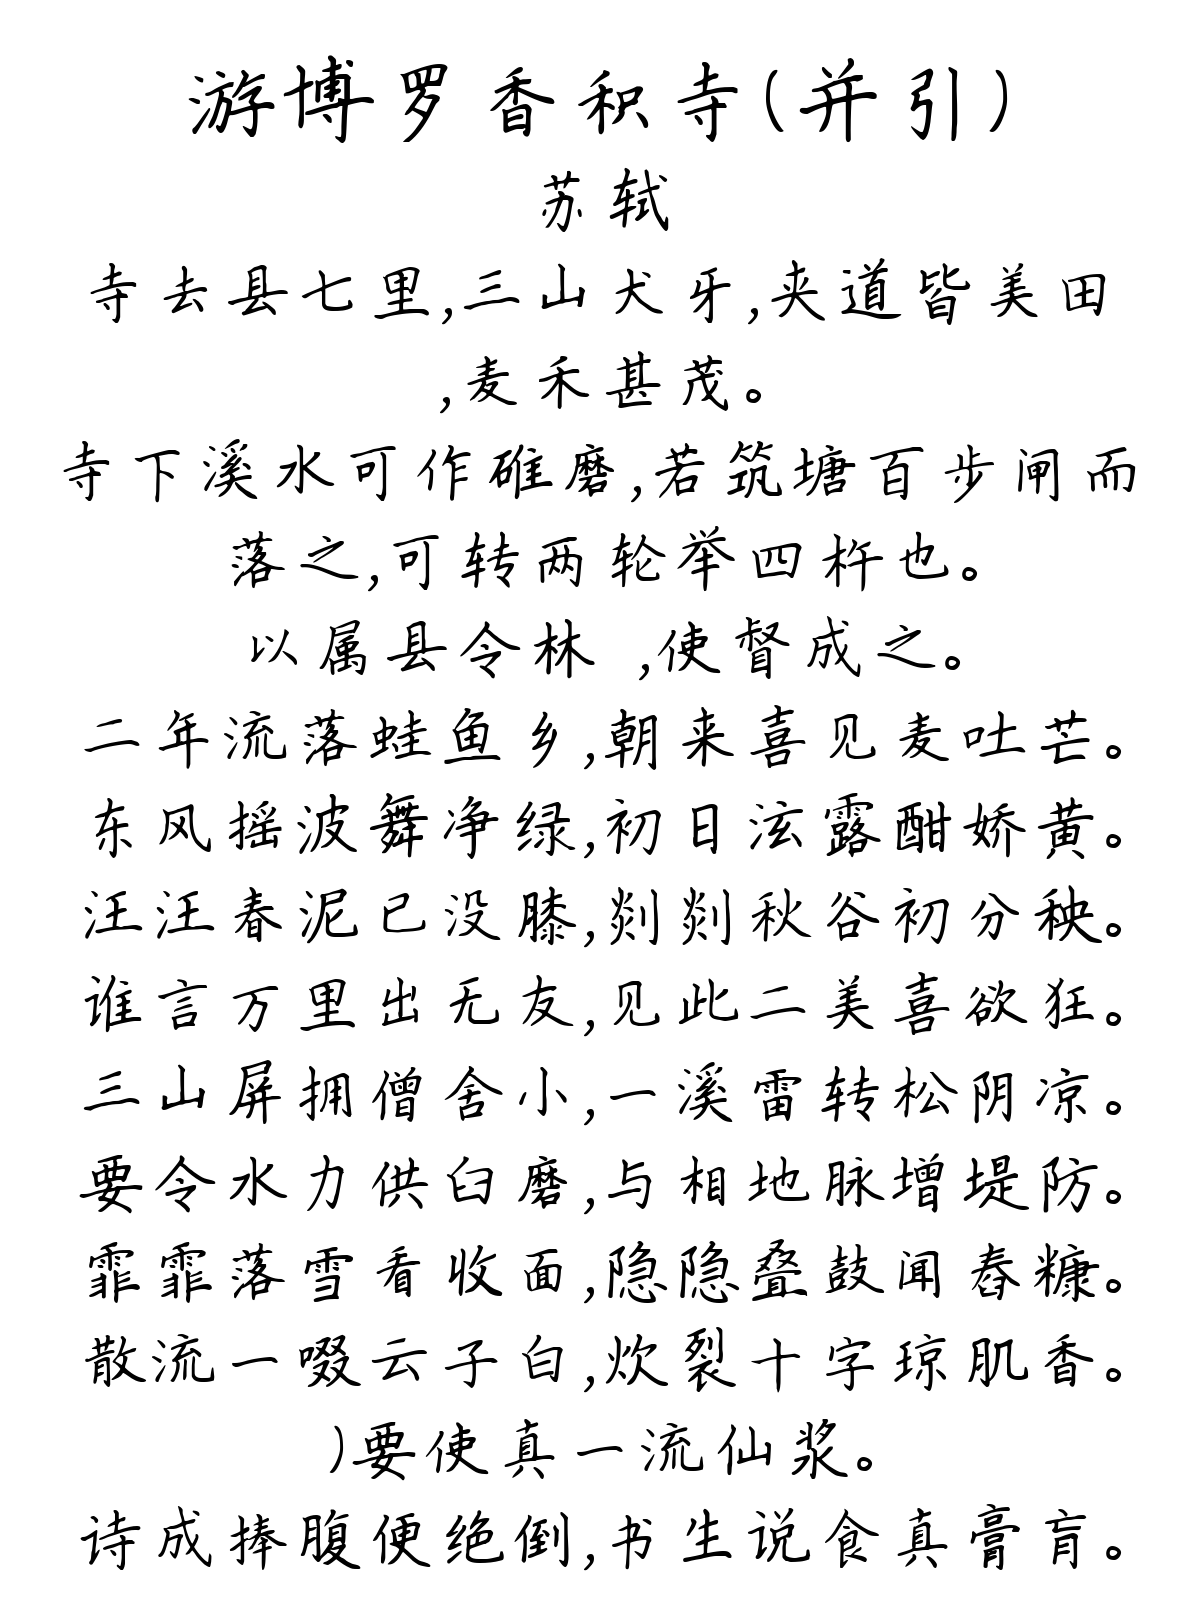 游博罗香积寺(并引)
苏轼
寺去县七里,三山犬牙,夹道皆美田
,麦禾甚茂。
寺下溪水可作碓磨,若筑塘百步闸而
落之,可转两轮举四杵也。
以属县令林 ,使督成之。
二年流落蛙鱼乡,朝来喜见麦吐芒。
东风摇波舞净绿,初日泫露酣娇黄。
汪汪春泥已没膝,剡剡秋谷初分秧。
谁言万里出无友,见此二美喜欲狂。
三山屏拥僧舍小,一溪雷转松阴凉。
要令水力供臼磨,与相地脉增堤防。
霏霏落雪看收面,隐隐叠鼓闻舂糠。
散流一啜云子白,炊裂十字琼肌香。
)要使真一流仙浆。
诗成捧腹便绝倒,书生说食真膏肓。